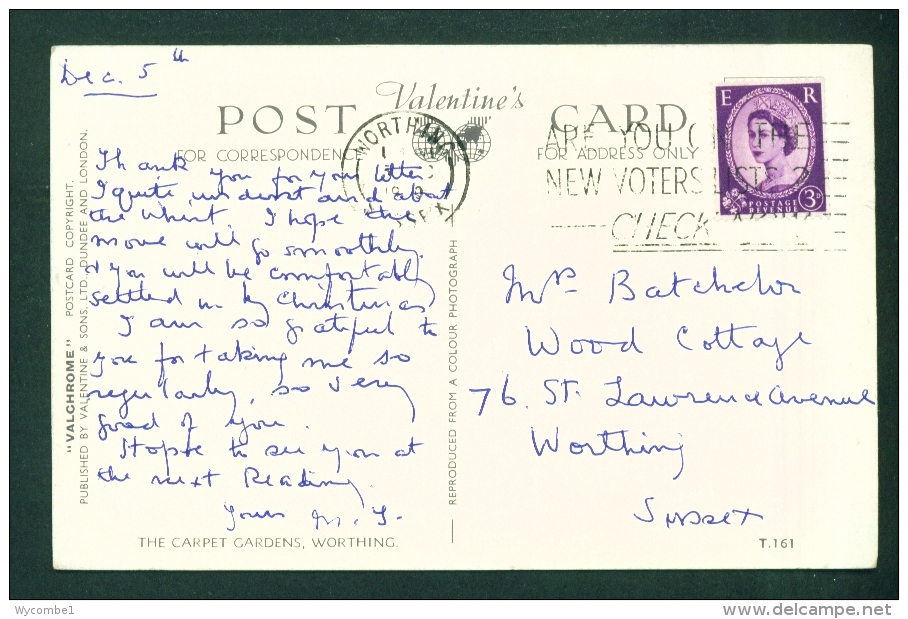 Dec. 5th
POST Valentine's CARD
FOR CORRESPONDENCE
FOR ADDRESS ONLY
Thank you for your letter
I quite understand about
the Whist. I hope the
move will go smoothly
& you will be comfortably
settled in by Christmas
I am so grateful to
you for taking me so
regularly, so very
good of you.
Hope to see you at
the next Reading.
Yours M. Y.
THE CARPET GARDENS, WORTHING.
"VALCHROME" POSTCARD COPYRIGHT.
PUBLISHED BY VALENTINE & SONS, LTD., DUNDEE AND LONDON.
REPRODUCED FROM A COLOUR PHOTOGRAPH
WORTHING
SUSSEX
ARE YOU ON THE
NEW VOTERS LISTS?
CHECK
E R
POSTAGE
REVENUE
3D
Mrs Batchelor
Wood Cottage
76. St. Lawrence Avenue
Worthing
Sussex
T.161
Wycombe1
www.delcampe.net